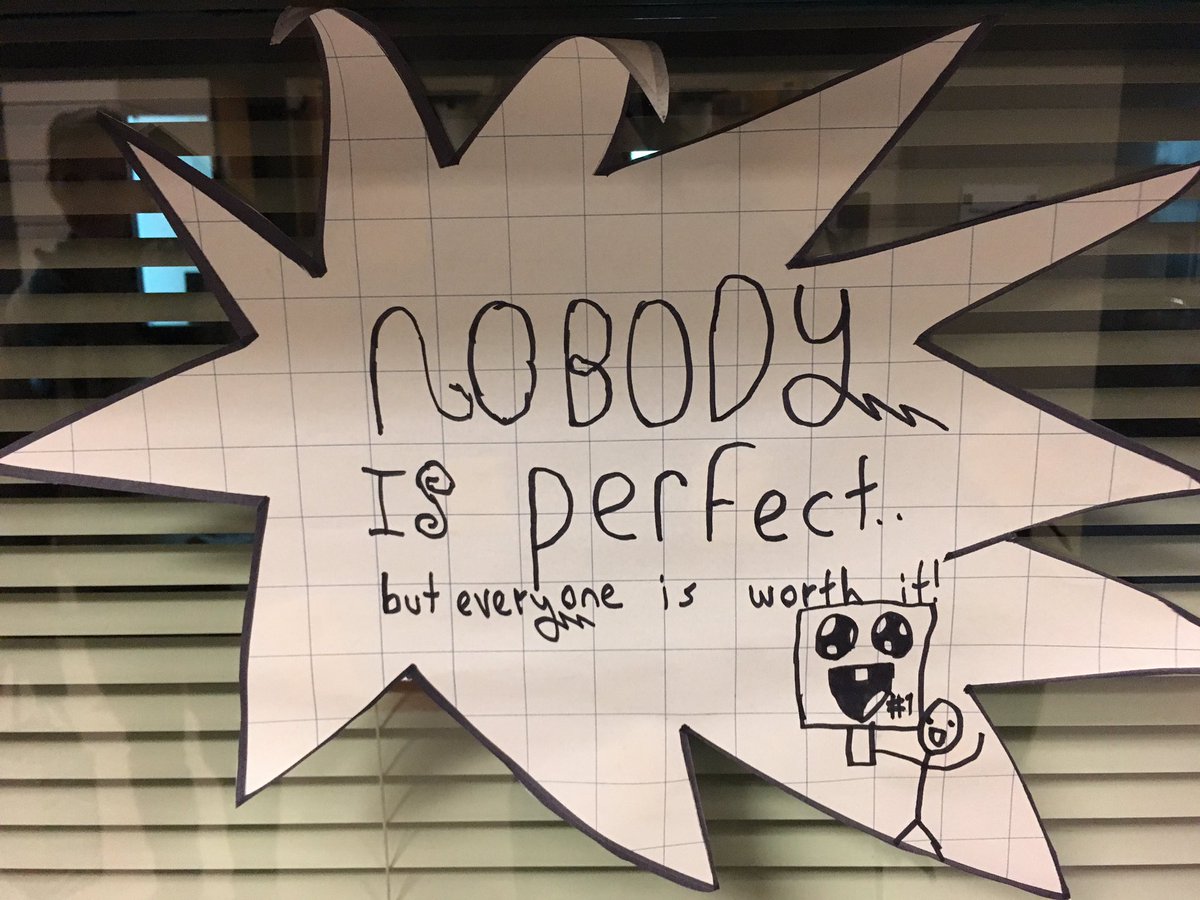 NOBODY
IS perfect..
but everyone is worth it!
#1